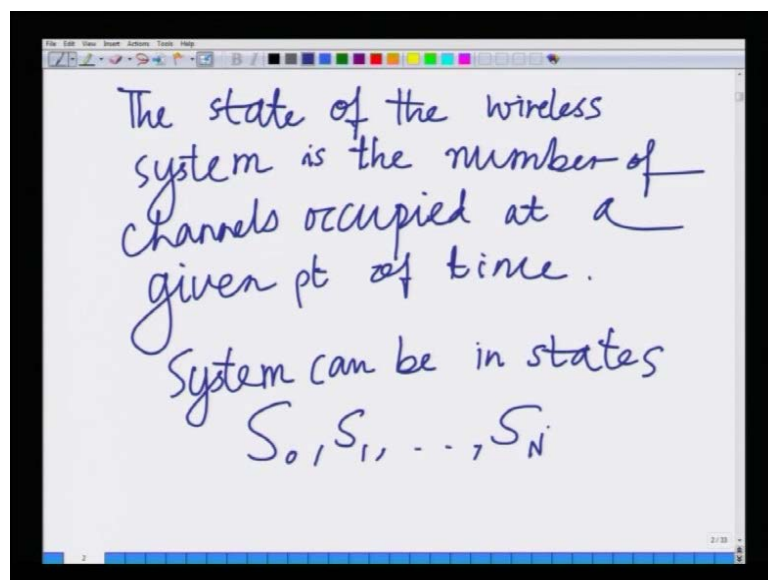 File Edit View Insert Actions Tools Help
The state of the wireless
system is the number of
channels occupied at a
given pt of time.
System can be in states
S₀, S₁, . . ., S_N
2/33
2